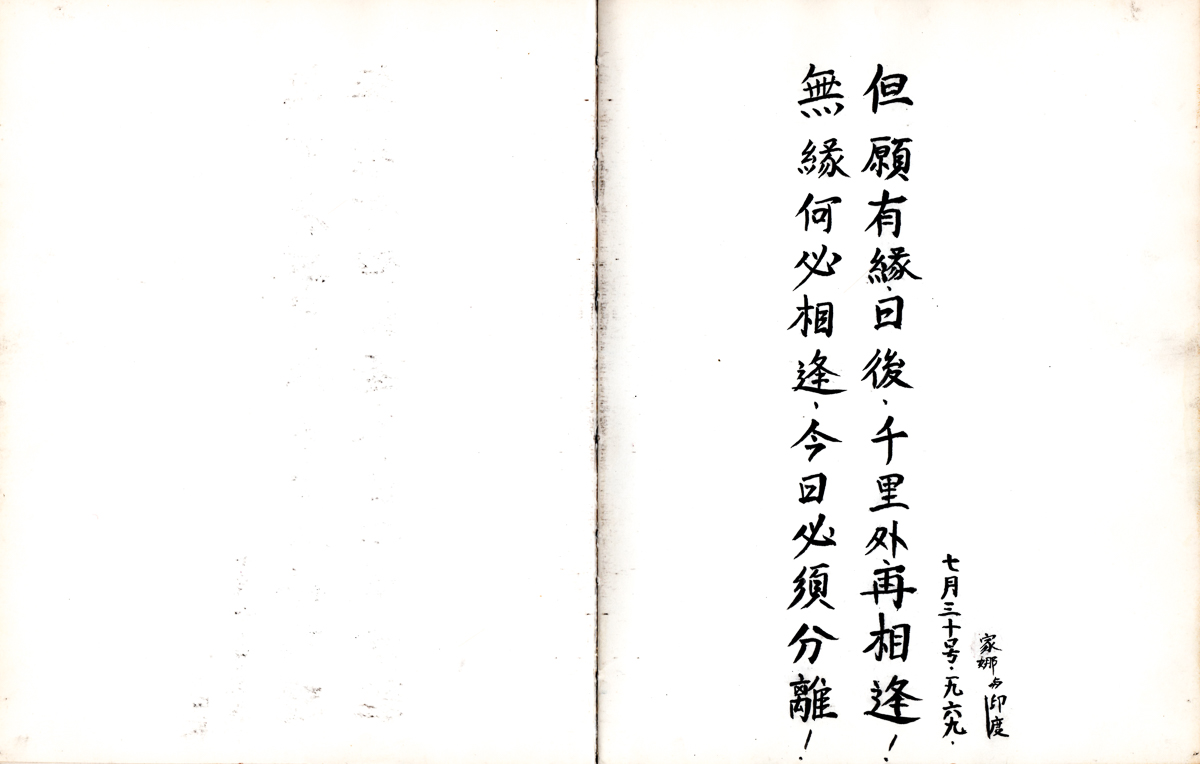 無緣何必相逢,今日必須分離!
但願有緣,日後,千里外再相逢!
七月三十号.一九六九.
家娜与印度